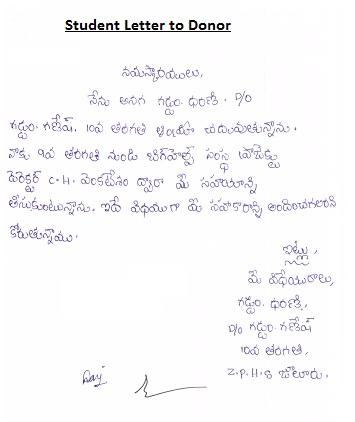 Student Letter to Donor
నమస్కారములు,
నేను అనగ గడ్డం. ధరణి. D/O
గడ్డం. గణేష్. 10వ తరగతి చదువుతున్నాను.
నాకు 9వ తరగతి నుండి బిగ్‌హెల్ప్ సంస్థ ప్రాజెక్టు
డైరెక్టర్ C.H. వెంకటేశం ద్వారా మీ సహాయాన్ని
తీసుకుంటున్నాను. ఇదే విధముగా మీ సహకారాన్ని అందించగలరని
కోరుతున్నాము.
ఇట్లు,
మీ విధేయురాలు,
గడ్డం. ధరణి,
D/O గడ్డం. గణేష్
10వ తరగతి,
Z.P.H.S